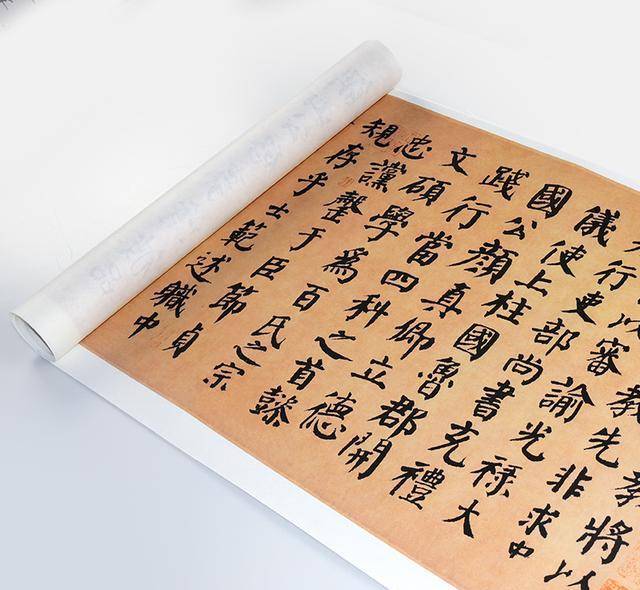 教將以
教先非求中
以審諭光祿大
行吏部尚書充禮
儀使上柱國魯郡開
國公顏真卿立德
踐行當四科之首懿
文碩學為百氏之宗
忠讜罄于臣節貞
規存乎士範述職中